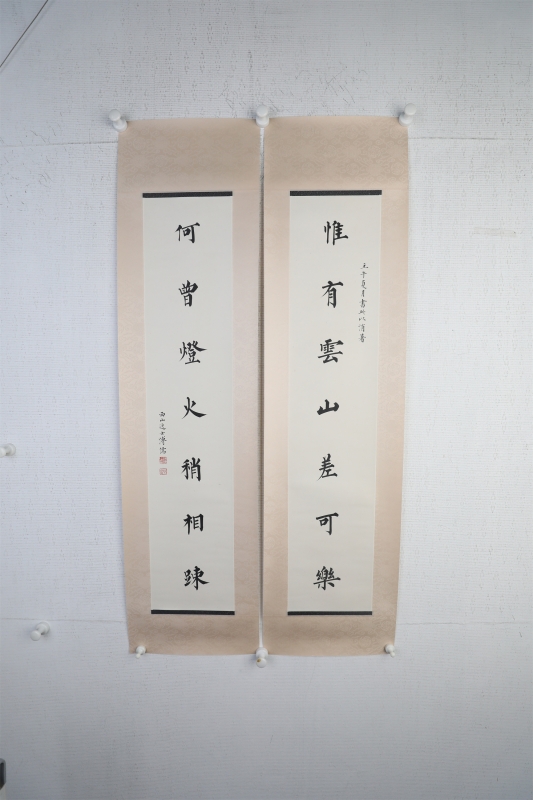 惟有雲山差可樂
壬子夏月書此以消暑
何曾燈火稍相踈
西山逸士溥儒